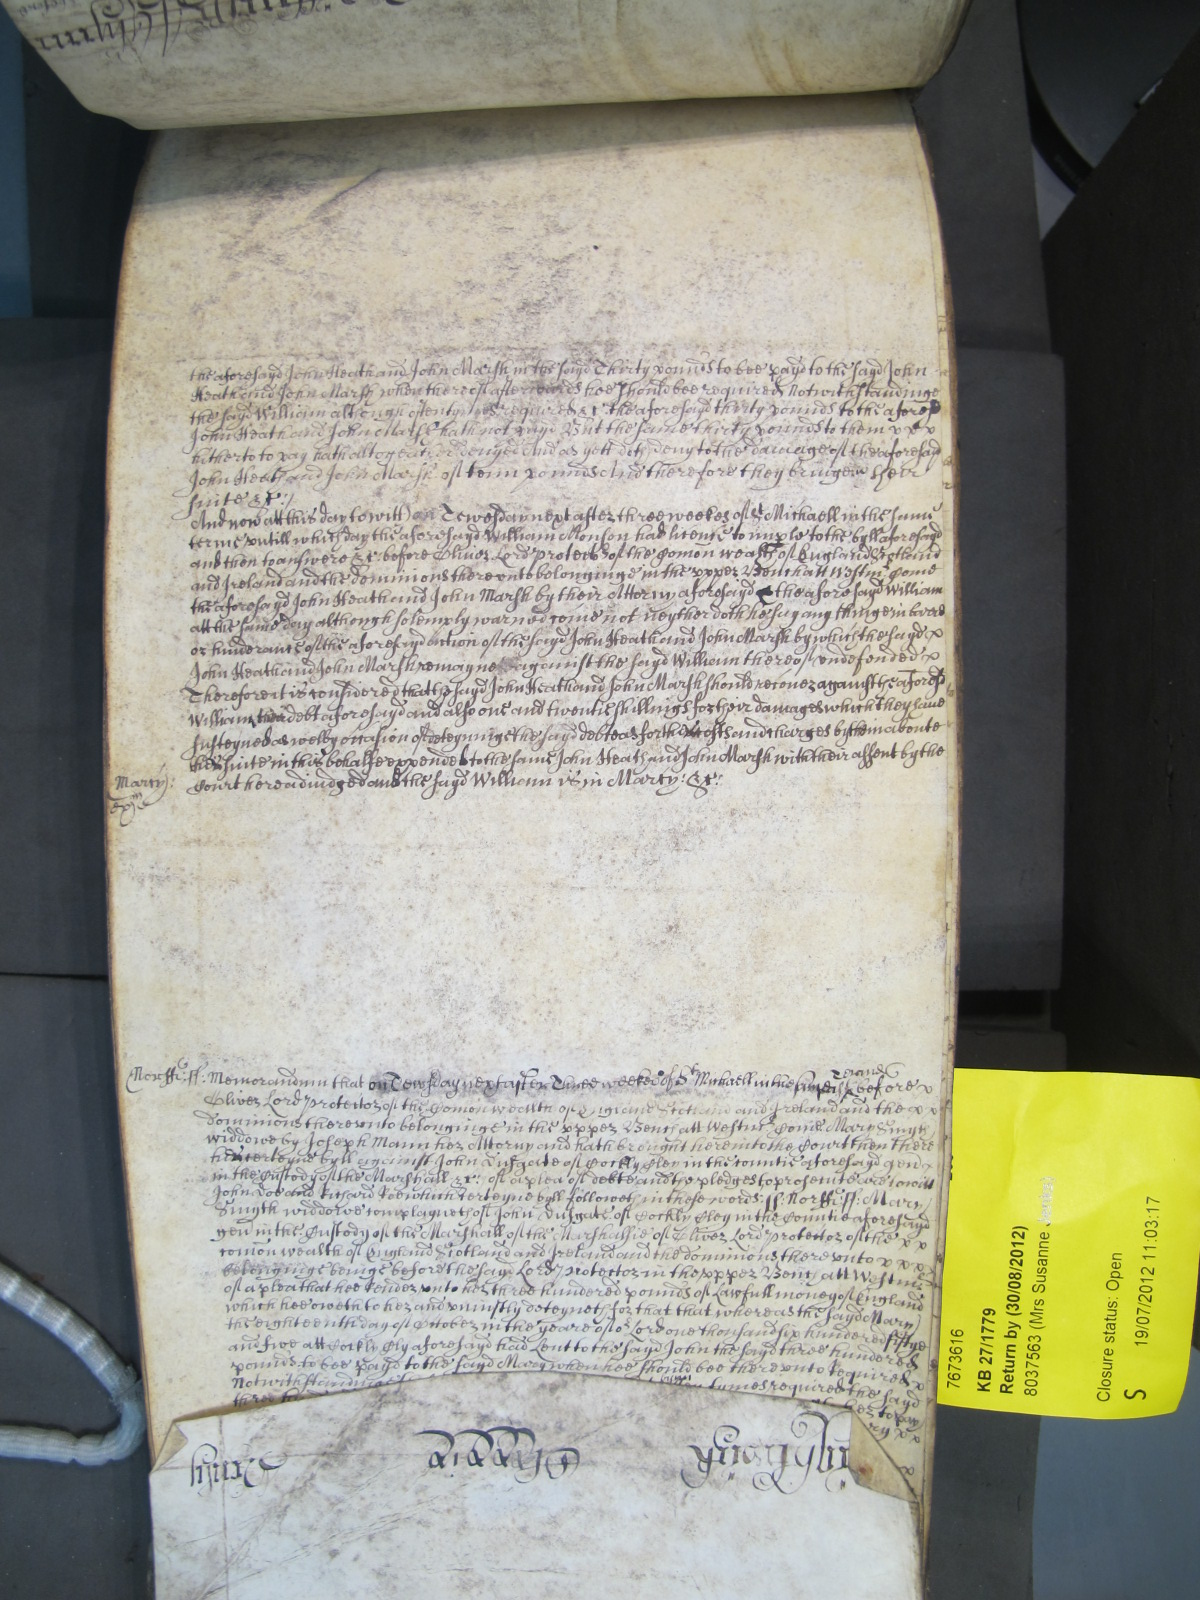 the aforesayd John Heath and John Marsh in the sayd Thirty pounds to bee payd to the sayd John
Heath and John Marsh when thereof afterwards hee should bee required Notwithstandinge
the sayd William although oftentymes required &c the aforesayd thirty pounds to the aforesd
John Heath and John Marsh hath not payd But the same thirty pounds to them x x x
hitherto to pay hath altogeather denyed And as yett doth deny to the damage of the aforesayd
John Heath and John Marsh of tenn pounds And therefore they bringe their
suite &c:/
And now att this day to witt on Tewesday next after three weekes of St Michaell in the same
terme untill which day the aforesayd William Monson had licence to imple to the byll aforesayd
and then to answere &c before Oliver Lord protector of the Comon wealth of England Scotland
and Ireland and the dominions thereunto belonginge in the upper Bench att Westmr Come
the aforesayd John Heath and John Marsh by their Attorny aforesayd & the aforesayd William
att the same day although solemply warned come not neyther doth hee say any thinge in barre
or hinderance of the aforesayd action of the sayd John Heath and John Marsh by which the sayd x
John Heath and John Marsh remayne against the sayd William thereof undefended x
Therefore it is considered that the sayd John Heath and John Marsh should recover against the aforesd
William their debt aforesayd and also one and twentie shillings for their damages which they have
susteyned as well by occasion of deteyninge the sayd debt as for their costs and charges by them aboute
their suite in this behalfe expended to the same John Heath and John Marsh with their assent by the
Court here adiudged and the sayd William is in Marcy: &c:
Marcy:
Norff: ss: Memorandum that on Tewsday next after Three weekes of St Michaell in the before x
Oliver Lord protector of the Comon wealth of England Scotland and Ireland and the x x
dominions thereunto belonginge in the upper Bench att Westmr Come Mary Smyth
widdowe by Joseph Mann her Attorny and hath brought here into the Court then there
her certeyne byll against John Aufgate of Cockly Cley in the countie aforesayd gent
in the Custody of the Marshall &c: of a plea of debt and the pledges to prosecute are to witt
John Doe and Richard Roe which certeyne byll followeth in these words: ss: Norff: ss: Mary
Smyth widdowe complayneth of John Aufgate of Cockly Cley in the Countie aforesayd
gen in the Custody of the Marshall of the Marshalsie of Oliver Lord protector of the x x
comon wealth of England Scotland and Ireland and the dominions thereunto x x x x
belonginge beinge before the sayd Lord protector in the upper Bench att Westmr
of a plea that hee render unto her three hundered pounds of Lawfull money of England
which hee oweth to her and uniustly deteyneth for that that whereas the sayd Mary
the eighteenth day of October in the yeare of or Lord one thousand six hundered fiftye
and five att Cockly Cley aforesayd had Lent to the sayd John the sayd three hundered
pounds to bee payd to the sayd Mary when hee should bee thereunto required x
Notwithstandinge tymes required the sayd
three her to pay
x x
7673616
KB 27/1779
Return by (30/08/2012)
8037563 (Mrs Susanne
Closure status: Open
S
19/07/2012 11:03:17